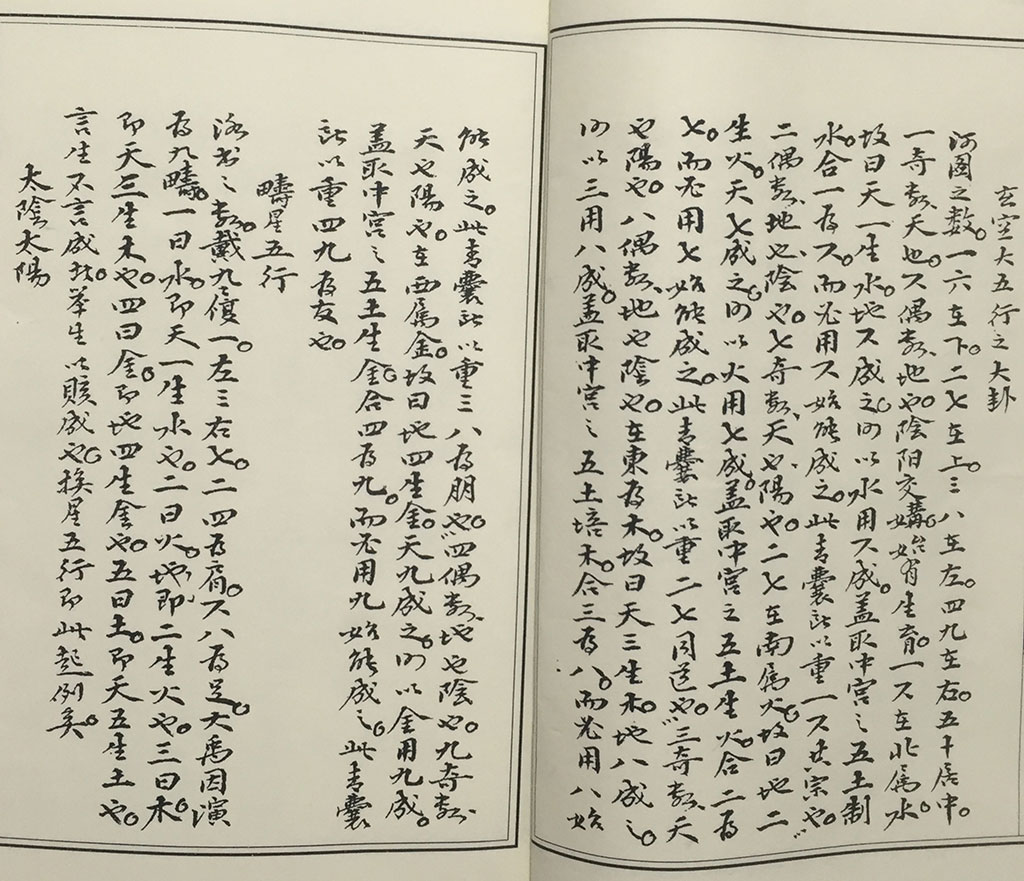 玄空大五行之大卦
河圖之数。一六在下。二七在上。三八在左。四九在右。五十居中。
一奇数、天也。六偶数、地也。陰阳交媾。始有生育。一六在北属水。
故曰天一生水。地六成之。何以水用六成。盖取中宮之五土制
水。合一為六。而必用六始能成之。此青囊所以重一六共宗也。
二偶数、地也、陰也。七奇数、天也、陽也。二七在南属火。故曰地二
生火。天七成之。何以火用七成。盖取中宮之五土生火。合二為
七。而必用七始能成之。此青囊所以重二七同道也。三奇数、天
也、陽也。八偶数、地也、陰也。在東為木。故曰天三生木。地八成之。
何以三用八成。盖取中宮之五土培木。合三為八。而必用八始
能成之。此青囊所以重三八為朋也。四偶数、地也、陰也。九奇数、
天也、陽也。在西属金。故曰地四生金。天九成之。何以金用九成。
盖取中宮之五土生金。合四為九。而必用九始能成之。此青囊
所以重四九為友也。
疇星五行
洛书之数。戴九履一。左三右七。二四為肩。六八為足。大禹因演
為九疇。一曰水。即天一生水也。二曰火。地即二生火也。三曰木。
即天三生木也。四曰金。即地四生金也。五曰土。即天五生土也。
言生不言成。非举生以賅成也。挨星五行即此起例矣。
太陰太陽